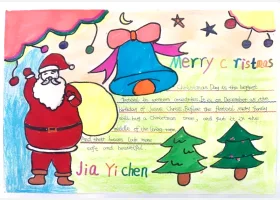 Merry Cristmas
Christmas Day is the biggest
festival in western countries. It is on December 25 the
birthday of Jesus Christ. Before the festival, every family
will buy a Christmas tree, and put it in the
middle of the living room.
And their houses look more
safe and beautiful.
Jia Yi chen